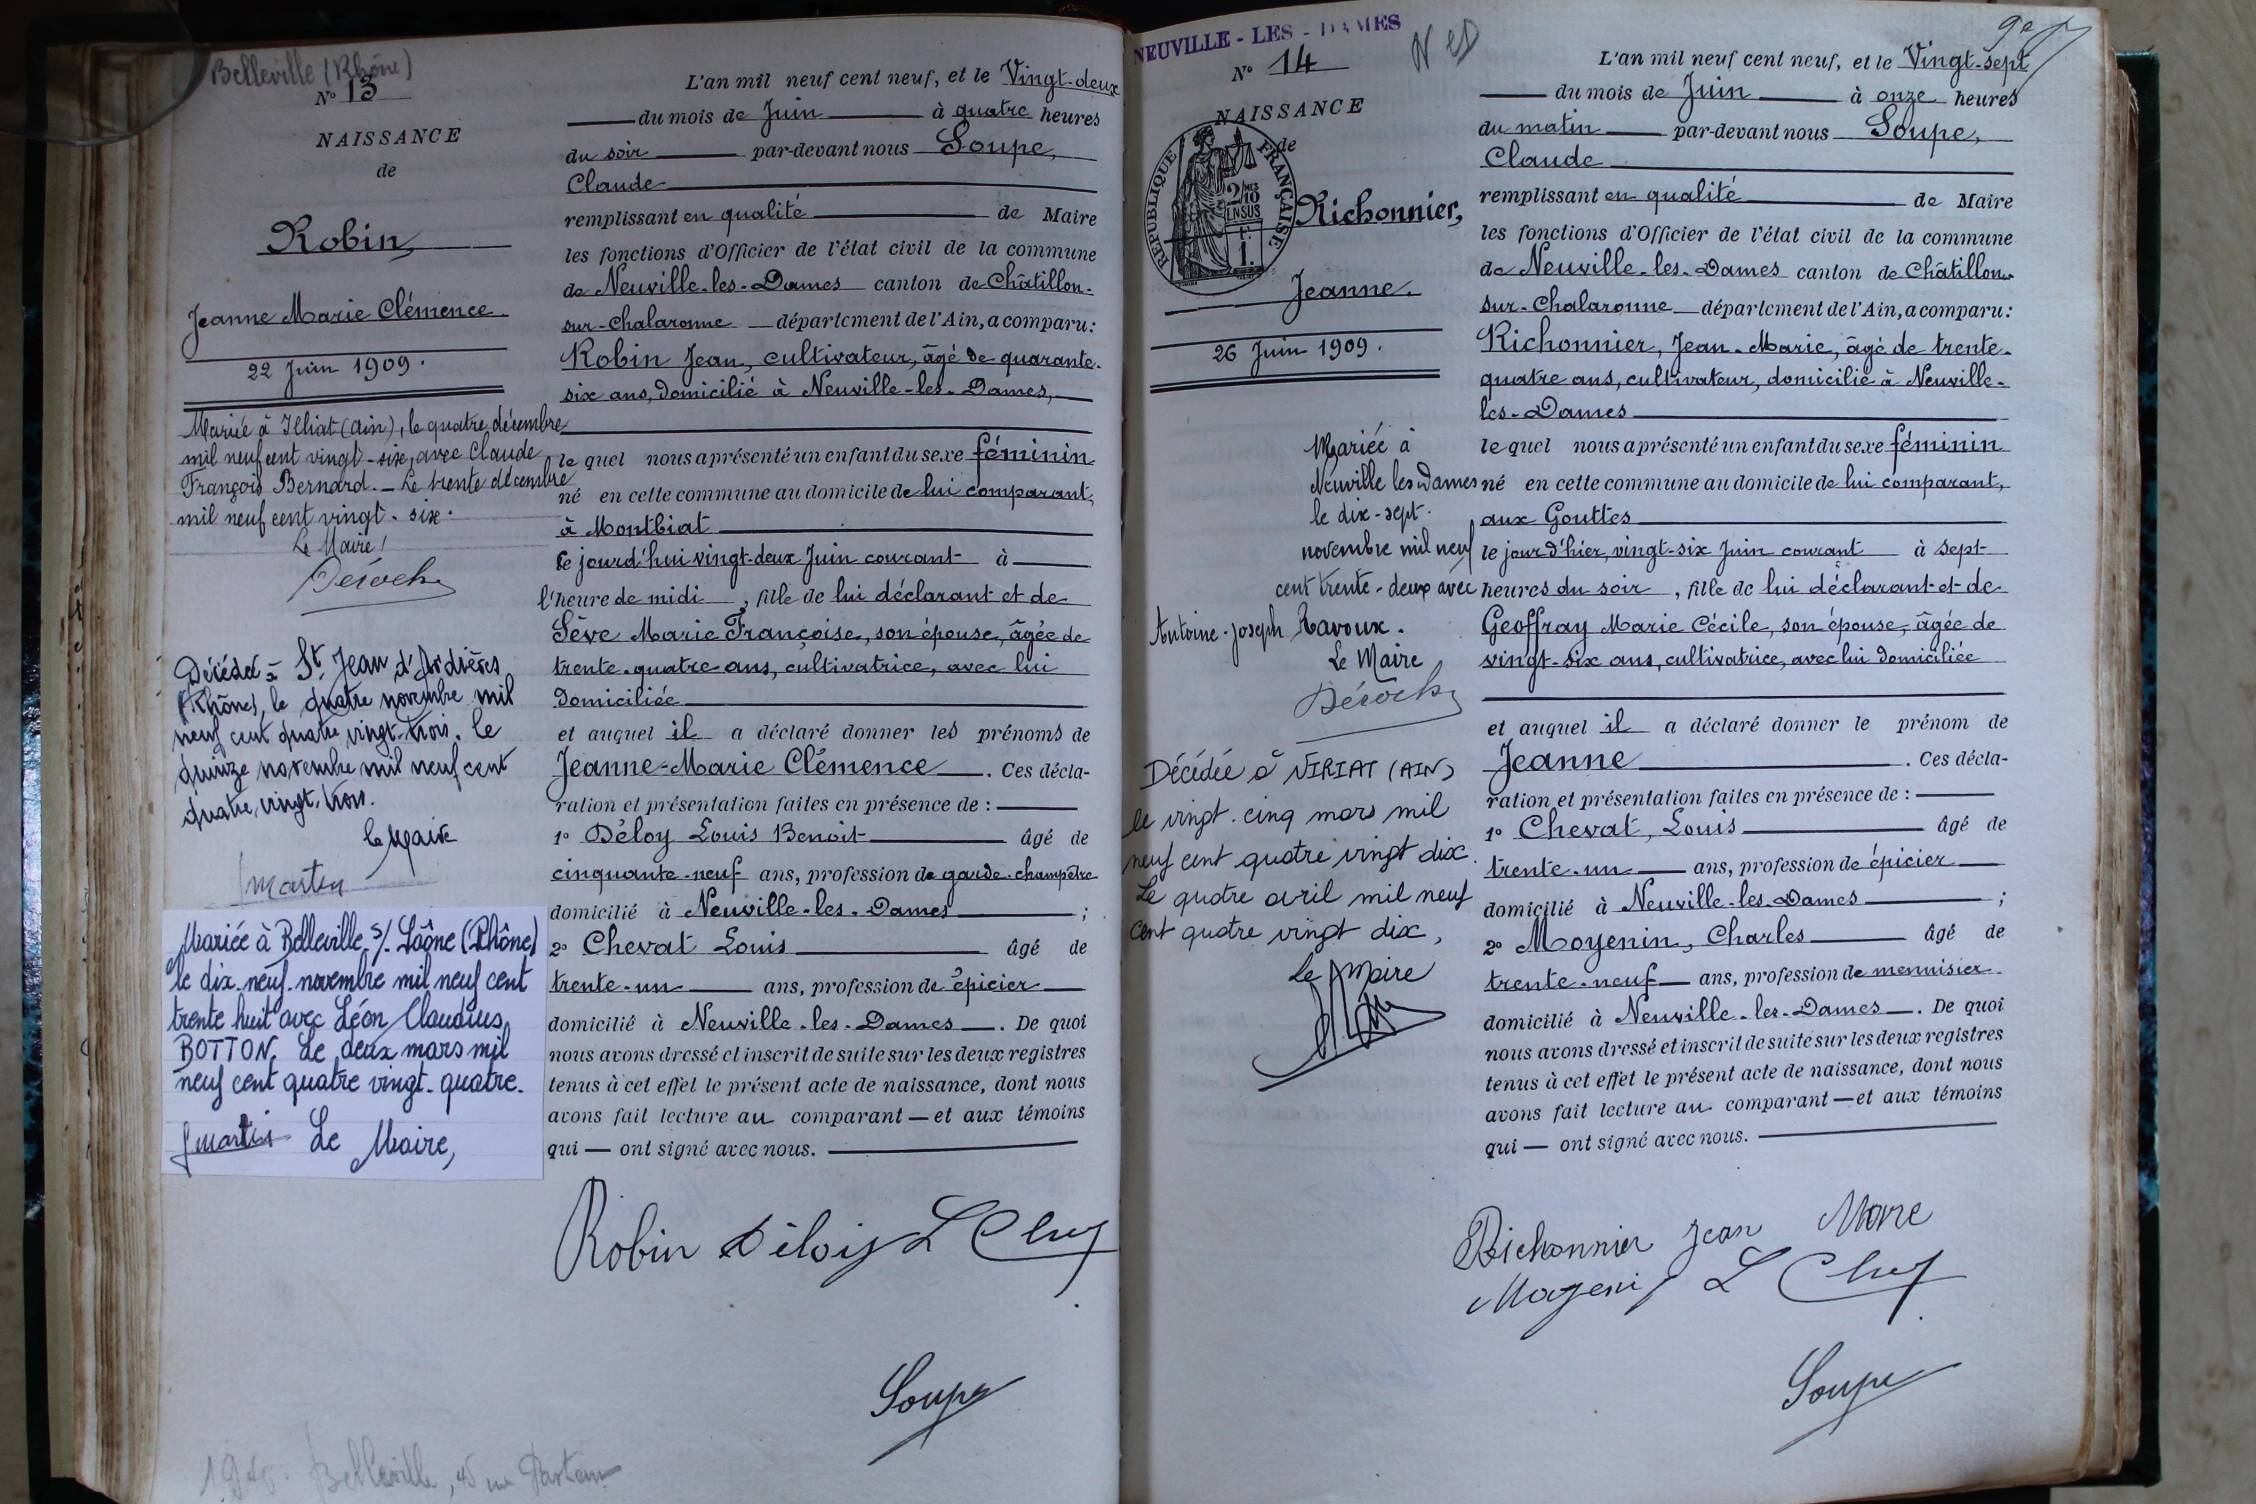 Belleville (Rhône)
N° 13
NAISSANCE
de
Robin,
Jeanne Marie Clémence
22 Juin 1909.
Mariée à Illiat (Ain), le quatre décembre
mil neuf cent vingt-six, avec Claude
François Bernard. _ Le trente décembre
mil neuf cent vingt-six.
Le Maire
Déroche
Décédée à St Jean d'Ardières
(Rhône), le quatre novembre mil
neuf cent quatre vingt-trois. le
quinze novembre mil neuf cent
quatre, vingt, trois.
le Maire
Mariée à Belleville s/. Saône (Rhône)
le dix-neuf novembre mil neuf cent
trente huit avec Léon Claudius
BOTTON. Le deux mars mil
neuf cent quatre vingt-quatre.
Le Maire,
L'an mil neuf cent neuf, et le Vingt-deux
du mois de Juin à quatre heures
du soir par-devant nous Soupe,
Claude
remplissant en qualité de Maire
les fonctions d'Officier de l'état civil de la commune
de Neuville-les-Dames canton de Châtillon-
sur-Chalaronne département de l'Ain, a comparu:
Robin Jean, cultivateur, âgé de quarante-
six ans, domicilié à Neuville-les-Dames,
le quel nous a présenté un enfant du sexe féminin
né en cette commune au domicile de lui comparant,
à Montbiat
ce jourd'hui vingt-deux Juin courant à
l'heure de midi, fille de lui déclarant et de
Sève Marie Françoise, son épouse, âgée de
trente-quatre ans, cultivatrice, avec lui
domiciliée
et auquel il a déclaré donner les prénoms de
Jeanne-Marie Clémence. Ces décla-
ration et présentation faites en présence de :
1° Déloy Louis Benoit âgé de
cinquante-neuf ans, profession de garde-champêtre
domicilié à Neuville-les-Dames ;
2° Chevat Louis âgé de
trente-un ans, profession de épicier
domicilié à Neuville-les-Dames. De quoi
nous avons dressé et inscrit de suite sur les deux registres
tenus à cet effet le présent acte de naissance, dont nous
avons fait lecture au comparant — et aux témoins
qui — ont signé avec nous.
Robin Déloiy L Chf
Soupe
Belleville, 45 rue
NEUVILLE-LES-DAMES
N° 14
NAISSANCE
de
REPUBLIQUE FRANÇAISE
2/10MES
EN SUS
1.
Richonnier,
Jeanne.
26 Juin 1909.
Mariée à
Neuville les Dames
le dix-sept
novembre mil neuf
cent trente-deux avec
Antoine-Joseph Ravoux.
Le Maire
Déroche
Décédée à VIRIAT (AIN)
le vingt.cinq mars mil
neuf cent quatre vingt dix.
Le quatre avril mil neuf
cent quatre vingt dix,
Le Maire
L'an mil neuf cent neuf, et le Vingt-sept
du mois de Juin à onze heures
du matin par-devant nous Soupe,
Claude
remplissant en qualité de Maire
les fonctions d'Officier de l'état civil de la commune
de Neuville-les-Dames canton de Châtillon-
sur-Chalaronne département de l'Ain, a comparu:
Richonnier, Jean-Marie, âgé de trente-
quatre ans, cultivateur, domicilié à Neuville-
les-Dames
le quel nous a présenté un enfant du sexe féminin
né en cette commune au domicile de lui comparant,
aux Gouttes
le jour d'hier, vingt-six Juin courant à sept
heures du soir, fille de lui déclarant et de
Geoffray Marie Cécile, son épouse, âgée de
vingt-six ans, cultivatrice, avec lui domiciliée
et auquel il a déclaré donner le prénom de
Jeanne. Ces décla-
ration et présentation faites en présence de :
1° Chevat, Louis âgé de
trente-un ans, profession de épicier
domicilié à Neuville-les-Dames ;
2° Moyenin, Charles âgé de
trente-neuf ans, profession de menuisier
domicilié à Neuville-les-Dames. De quoi
nous avons dressé et inscrit de suite sur les deux registres
tenus à cet effet le présent acte de naissance, dont nous
avons fait lecture au comparant — et aux témoins
qui — ont signé avec nous.
Richonnier Jean Marie
Moyeni L Chf
Soupe